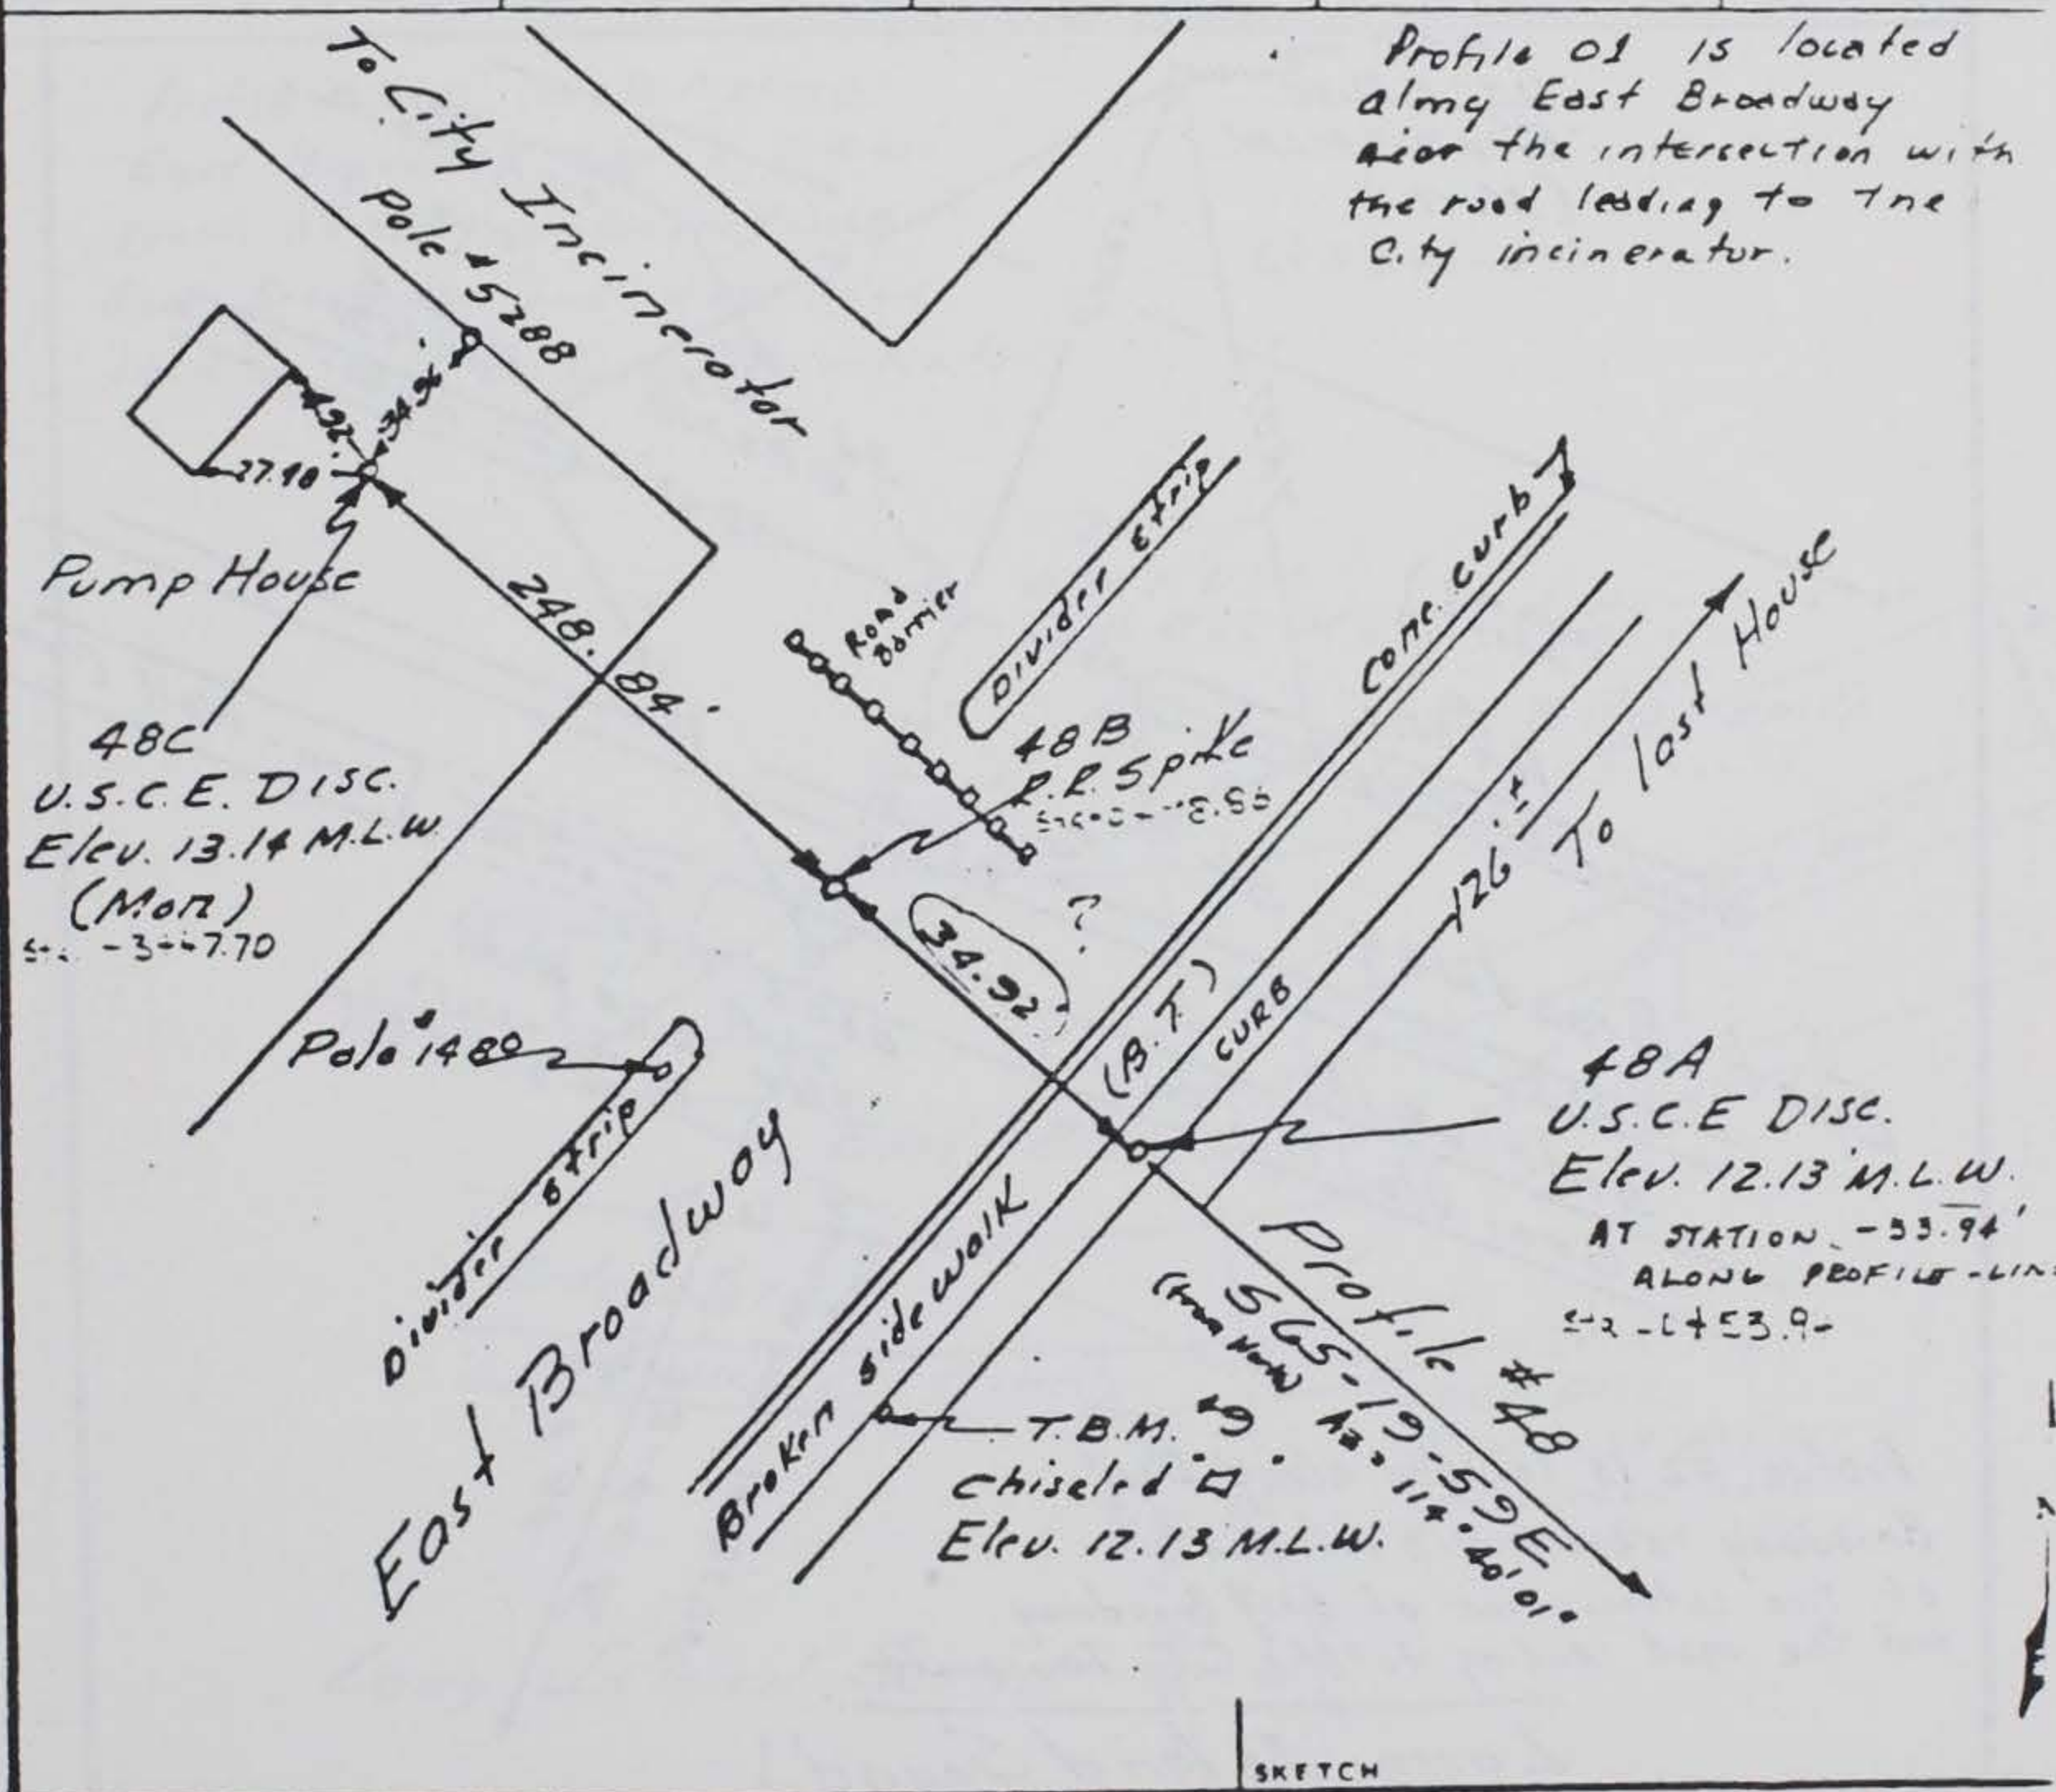 Profile 01 is located
along East Broadway
near the intersection with
the road leading to the
City incinerator.
To City Incinerator
Pole #5288
34.96
4.92
27.90
Pump House
248.84'
Road
Barrier
Divider Strip
Conc. Curb
48B
R.R. Spike
To last House
126'±
48C
U.S.C.E. DISC.
Elev. 13.14 M.L.W.
(Mon)
7.70
34.92'
?
(B.T)
CURB
Pole #1480
Divider Strip
East Broadway
Broken sidewalk
48A
U.S.C.E DISC.
Elev. 12.13' M.L.W.
AT STATION -53.94'
ALONG PROFILE-LINE
Profile #48
S65-19-59E
Az= 114° 40' 01"
T.B.M. #9
Chiseled "□"
Elev. 12.13 M.L.W.
SKETCH